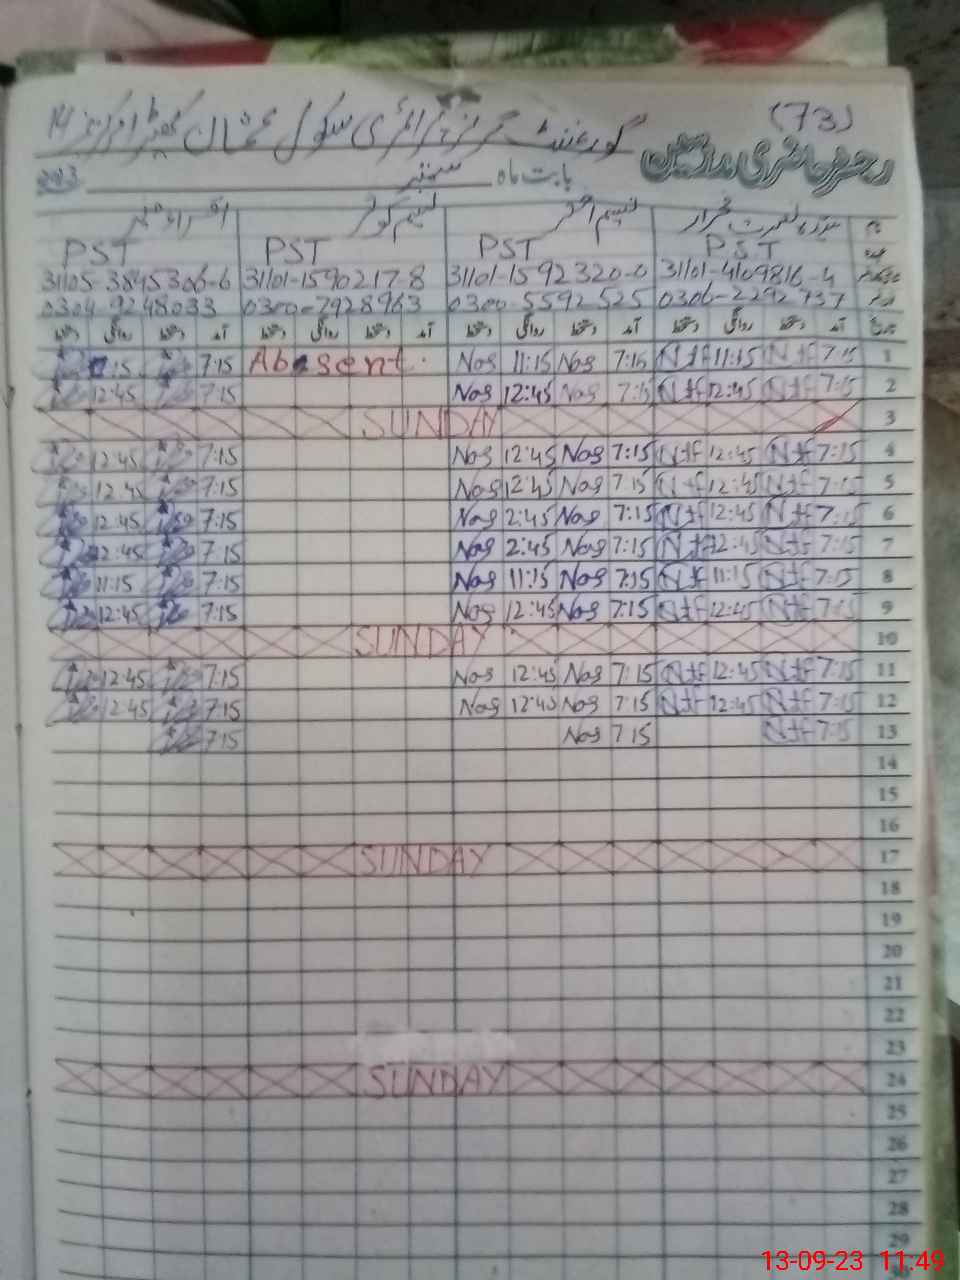 (73)
گورنمنٹ گرلز پرائمری سکول
رجسٹر حاضری مدرسین
بابت ماہ ستمبر
نسیم اختر نسیم کوثر
PST PST PST PST
31101-4109816-4 31101-1592320-0 31101-1590217-8 31105-3845306-6
0306-2292737 0300-5592525 0300-7928963 0304-9248033
آمد دستخط روانگی دستخط آمد دستخط روانگی دستخط آمد دستخط روانگی دستخط آمد دستخط روانگی دستخط
:15 7:15 Absent. Nas 11:15 Nas 7:15 Ntf 11:15 Ntf 7:15 1
12:45 7:15 Nas 12:45 Nas 7:15 Ntf 12:45 Ntf 7:15 2
SUNDAY 3
12:45 7:15 Nas 12:45 Nas 7:15 Ntf 12:45 Ntf 7:15 4
12:45 7:15 Nas 12:45 Nas 7:15 Ntf 12:45 Ntf 7:15 5
12:45 7:15 Nas 2:45 Nas 7:15 Ntf 12:45 Ntf 7:15 6
12:45 7:15 Nas 2:45 Nas 7:15 Ntf 12:45 Ntf 7:15 7
11:15 7:15 Nas 11:15 Nas 7:15 Ntf 11:15 Ntf 7:15 8
12:45 7:15 Nas 12:45 Nas 7:15 Ntf 12:45 Ntf 7:15 9
SUNDAY 10
12:45 7:15 Nas 12:45 Nas 7:15 Ntf 12:45 Ntf 7:15 11
12:45 7:15 Nas 12:45 Nas 7:15 Ntf 12:45 Ntf 7:15 12
7:15 Nas 7:15 Ntf 7:15 13
14
15
16
SUNDAY 17
18
19
20
21
22
23
SUNDAY 24
25
26
27
28
29
13-09-23 11:49